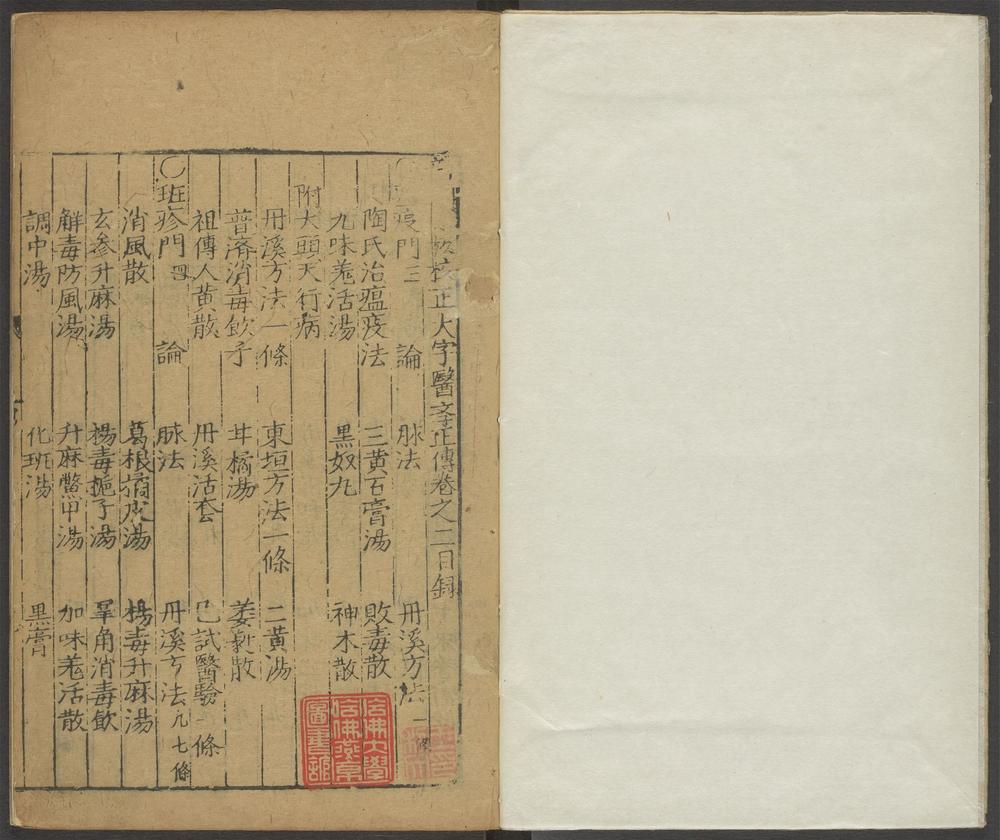 校正大字醫學正傳卷之二目錄
疫門三　論　脉法　丹溪方法一條
陶氏治瘟疫法　三黃石膏湯　敗毒散
九味羌活湯　黑奴丸　神木散
附大頭天行病
丹溪方法一條　東垣方法二條　二黃湯
普濟消毒飲子　甘橘湯　葳蕤散
祖傳人黃散　丹溪活套　已試醫驗一條
〇班疹門四　論　脉法　丹溪方法凡七條
消風散　葛根橘皮湯　楊毒升麻湯
玄參升麻湯　楊毒梔子湯　犀角消毒飲
解毒防風湯　升麻鱉甲湯　加味羌活散
調中湯　化班湯　黒膏
哈佛大學
哈佛燕京
圖書館